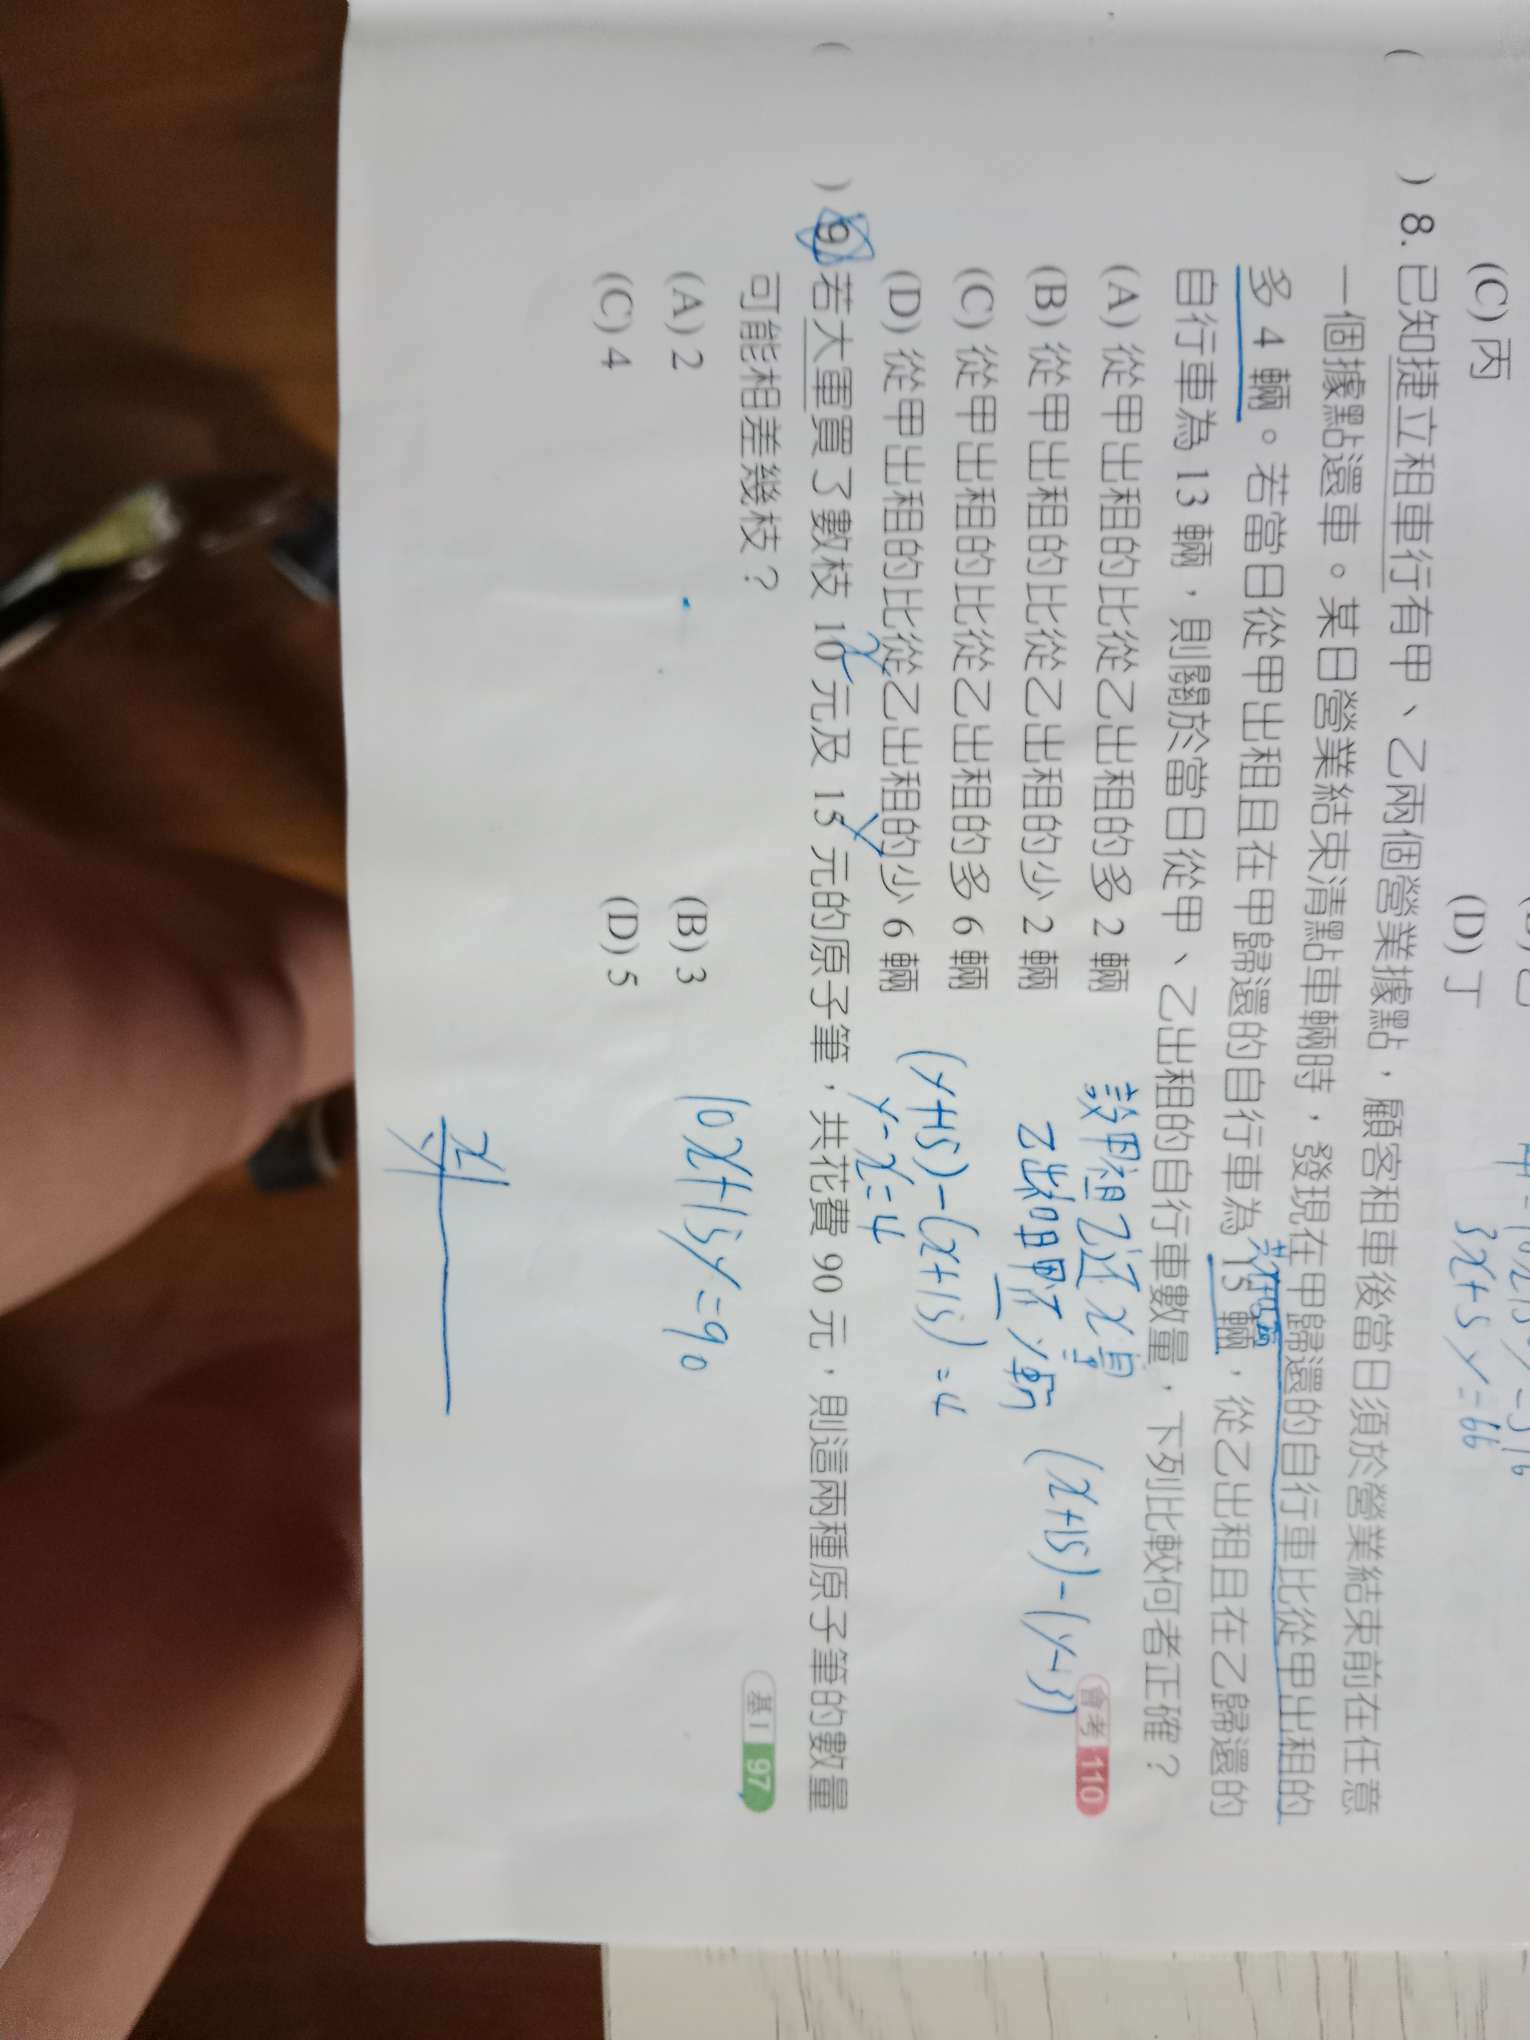 (C) 丙
(D) 丁
3x+5y=66
( ) 8. 已知捷立租車行有甲、乙兩個營業據點，顧客租車後當日須於營業結束前在任意
一個據點還車。某日營業結束清點車輛時，發現在甲歸還的自行車比從甲出租的
多 4 輛。若當日從甲出租且在甲歸還的自行車為 15 輛，從乙出租且在乙歸還的
自行車為 13 輛，則關於當日從甲、乙出租的自行車數量，下列比較何者正確？
(A) 從甲出租的比從乙出租的多 2 輛
會考 110
(B) 從甲出租的比從乙出租的少 2 輛
(C) 從甲出租的比從乙出租的多 6 輛
(D) 從甲出租的比從乙出租的少 6 輛
(x+15)-(y+13)
(y+15)-(x+15)=4
y-x=4
( ) 9. 若大軍買了數枝 10 元及 15 元的原子筆，共花費 90 元，則這兩種原子筆的數量
x
y
可能相差幾枝？
基 I 97
(A) 2
(B) 3
(C) 4
(D) 5
10x+15y=90
x
y